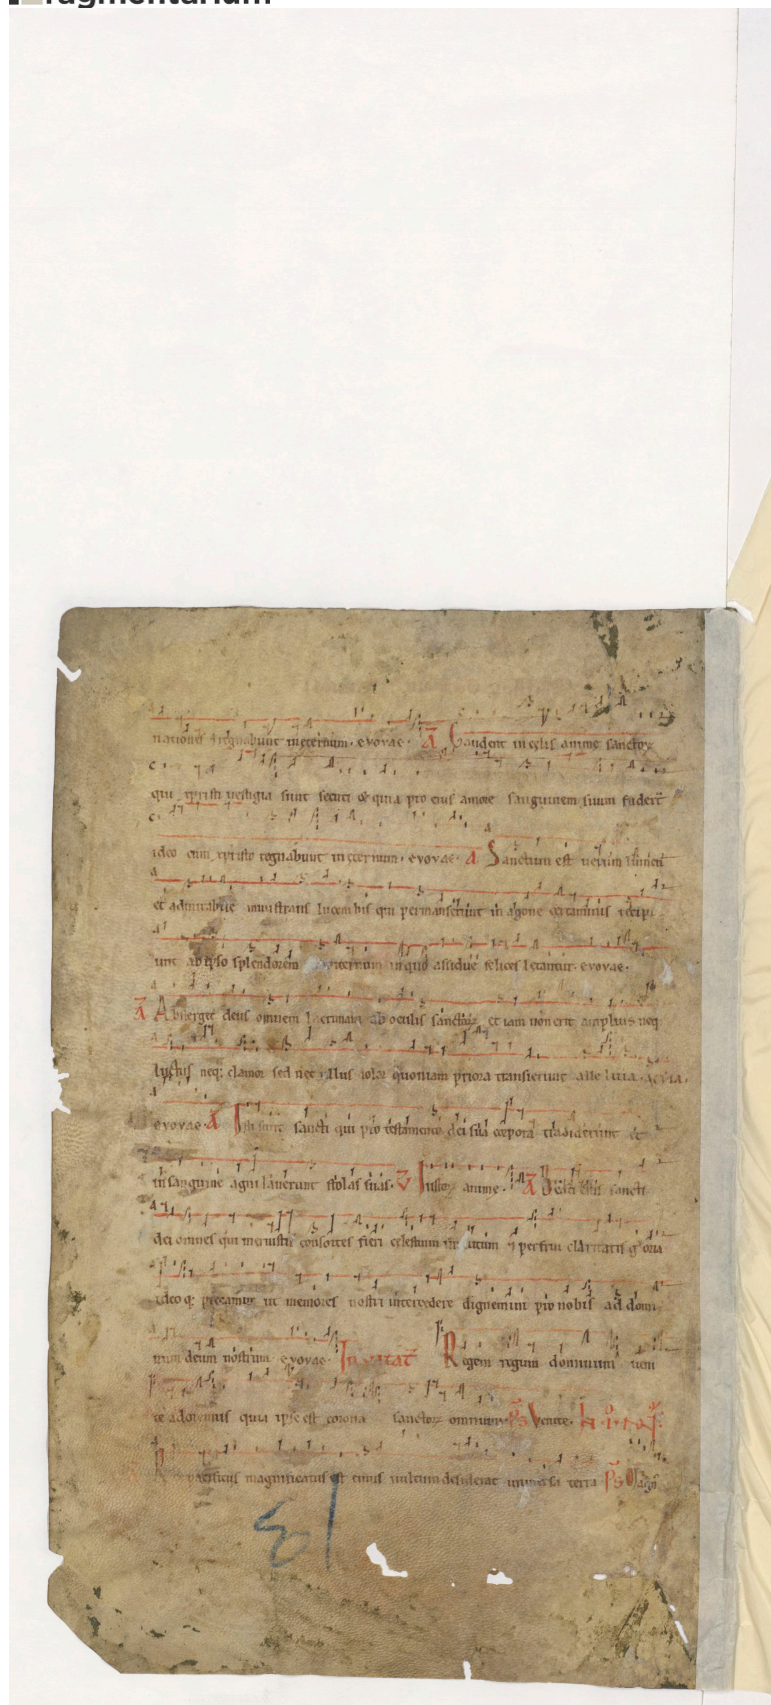 ragmentarium
nationes & regnabunt in eternum. evovae. A Gaudent in celis anime sanctoꝝ
qui xpisti vestigia sunt secuti & quia pro eius amore sanguinem suum fudert̄
ideo cum xpisto regnabunt in eternum. evovae. A Sanctum est uerum lumen
et admirabile ministrans lucem his qui permanserunt in agone certaminis recipi
unt ab ipso splendorem eternum in quo assidue felices letantur. evovae.
A Absterget deus omnem lacrimam ab oculis sanctoꝝ et iam non erit amplius neq
luctus neq: clamor sed nec ullus dolor quoniam priora transierunt alleluia. aevia.
evovae. A Isti sunt sancti qui pro testamento dei sua corpora tradiderunt et
in sanguine agni lauerunt stolas suas. V Iustoꝝ anime. A sancti
dei omnes qui meruistis consortes fieri celestium & perfrui claritatis gloria
ideo q: precamur ut memores nostri intercedere dignemini pro nobis ad domi
num deum nostrum evovae. Inuitat̄ Regem regum dominum ueni
te adoremus quia ipse est corona sanctoꝝ omnium. ps Venite.
Rex pacificus magnificatus est cuius uultum desiderat uniuersa terra ps